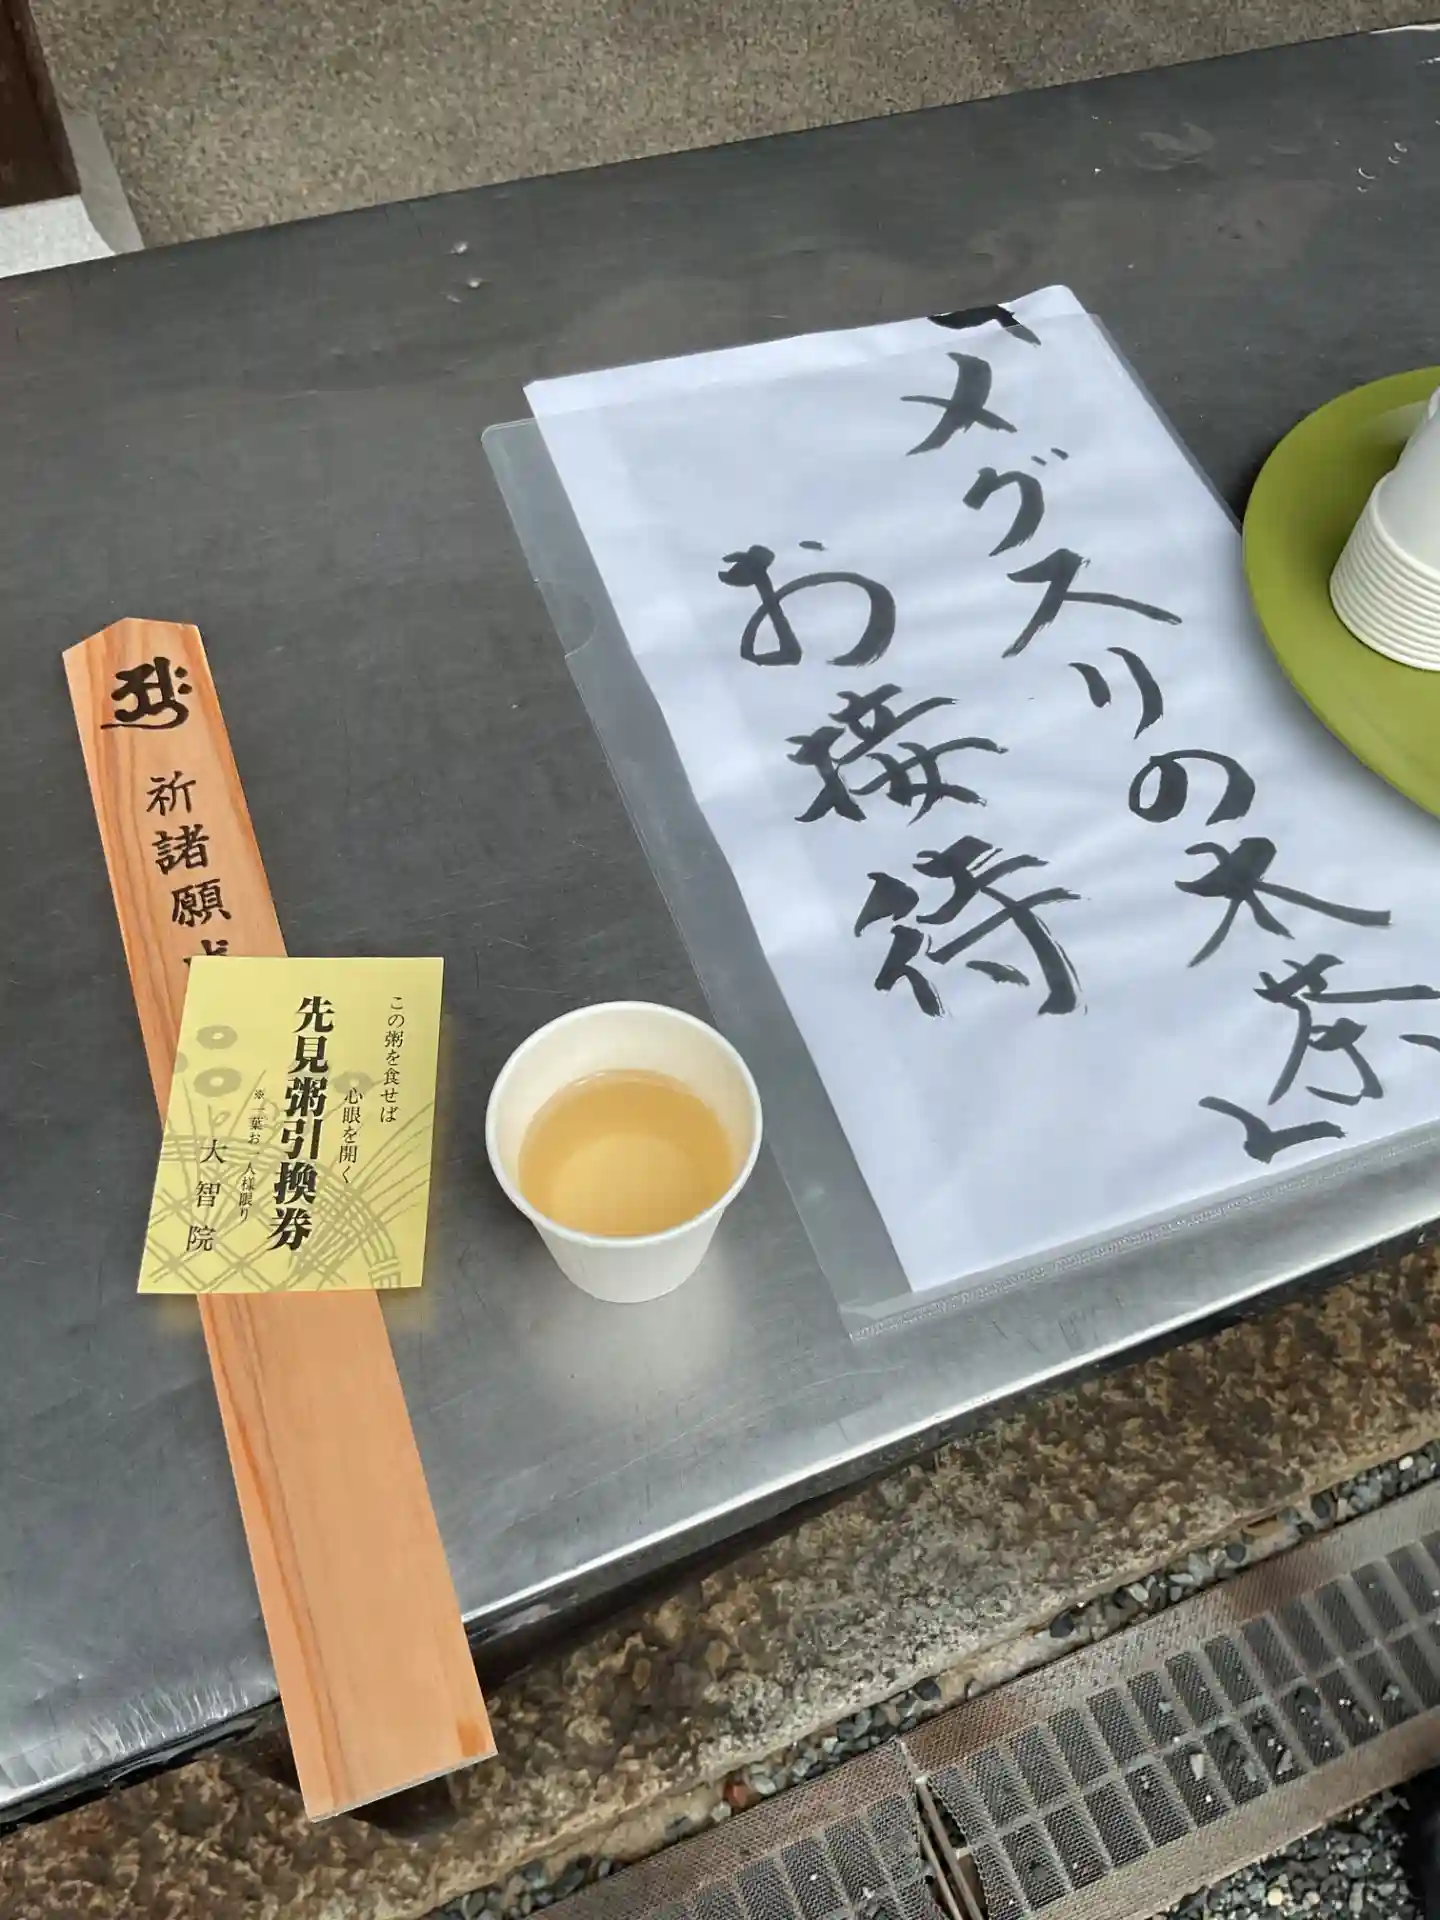 「メグスリの木茶」
お接待
祈諸願
この粥を食せば
心眼を開く
先見粥引換券
※一葉お一人様限り
大智院